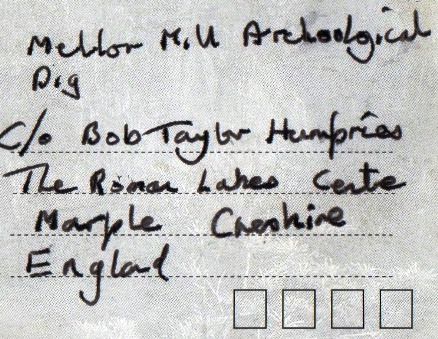 Mellor Mill Archeological
Dig
C/o Bob Taylor Humpries
The Roman Lakes Centre
Marple Cheshire
England